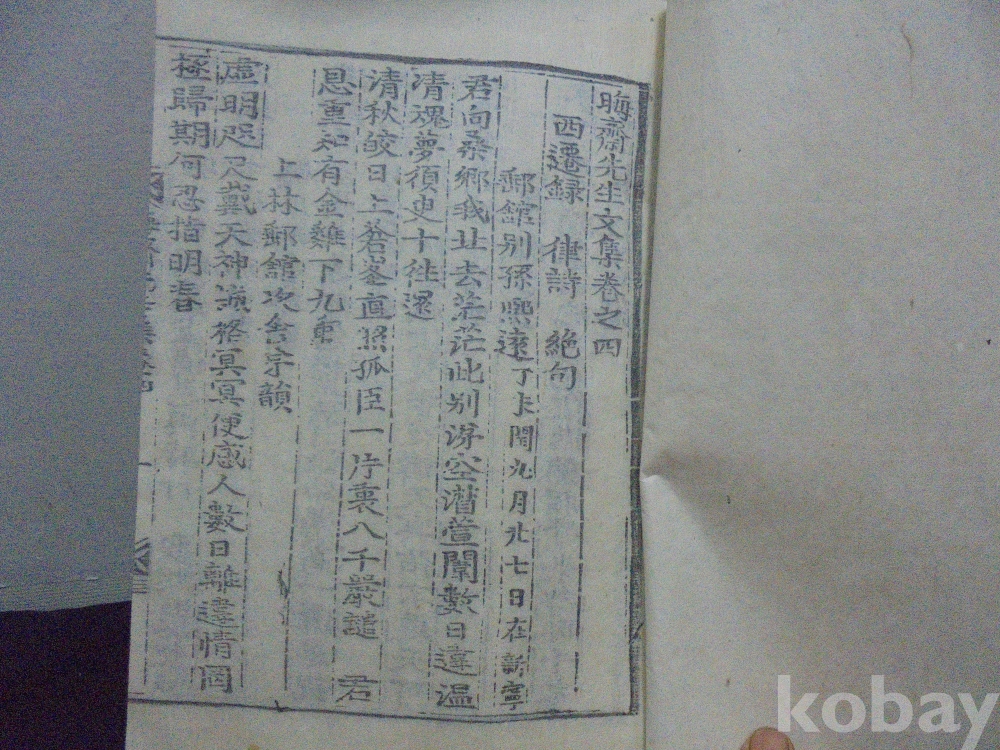 晦齋先生文集卷之四
西遷錄 律詩 絕句
郵舘別孫熙遠 丁未閏九月卄七日在新寧
君向桑鄉我北去茫茫此別淚空潸萱闈數日違溫
清魂夢須臾十往還
清秋皎日上蒼峯直照孤臣一片衷八千嚴譴 君
恩重知有金雞下九重
上林郵舘次舍弟韻
虛明咫尺戴天神 格冥冥便感人數日離違情罔
極歸期何忍指明春
kobay